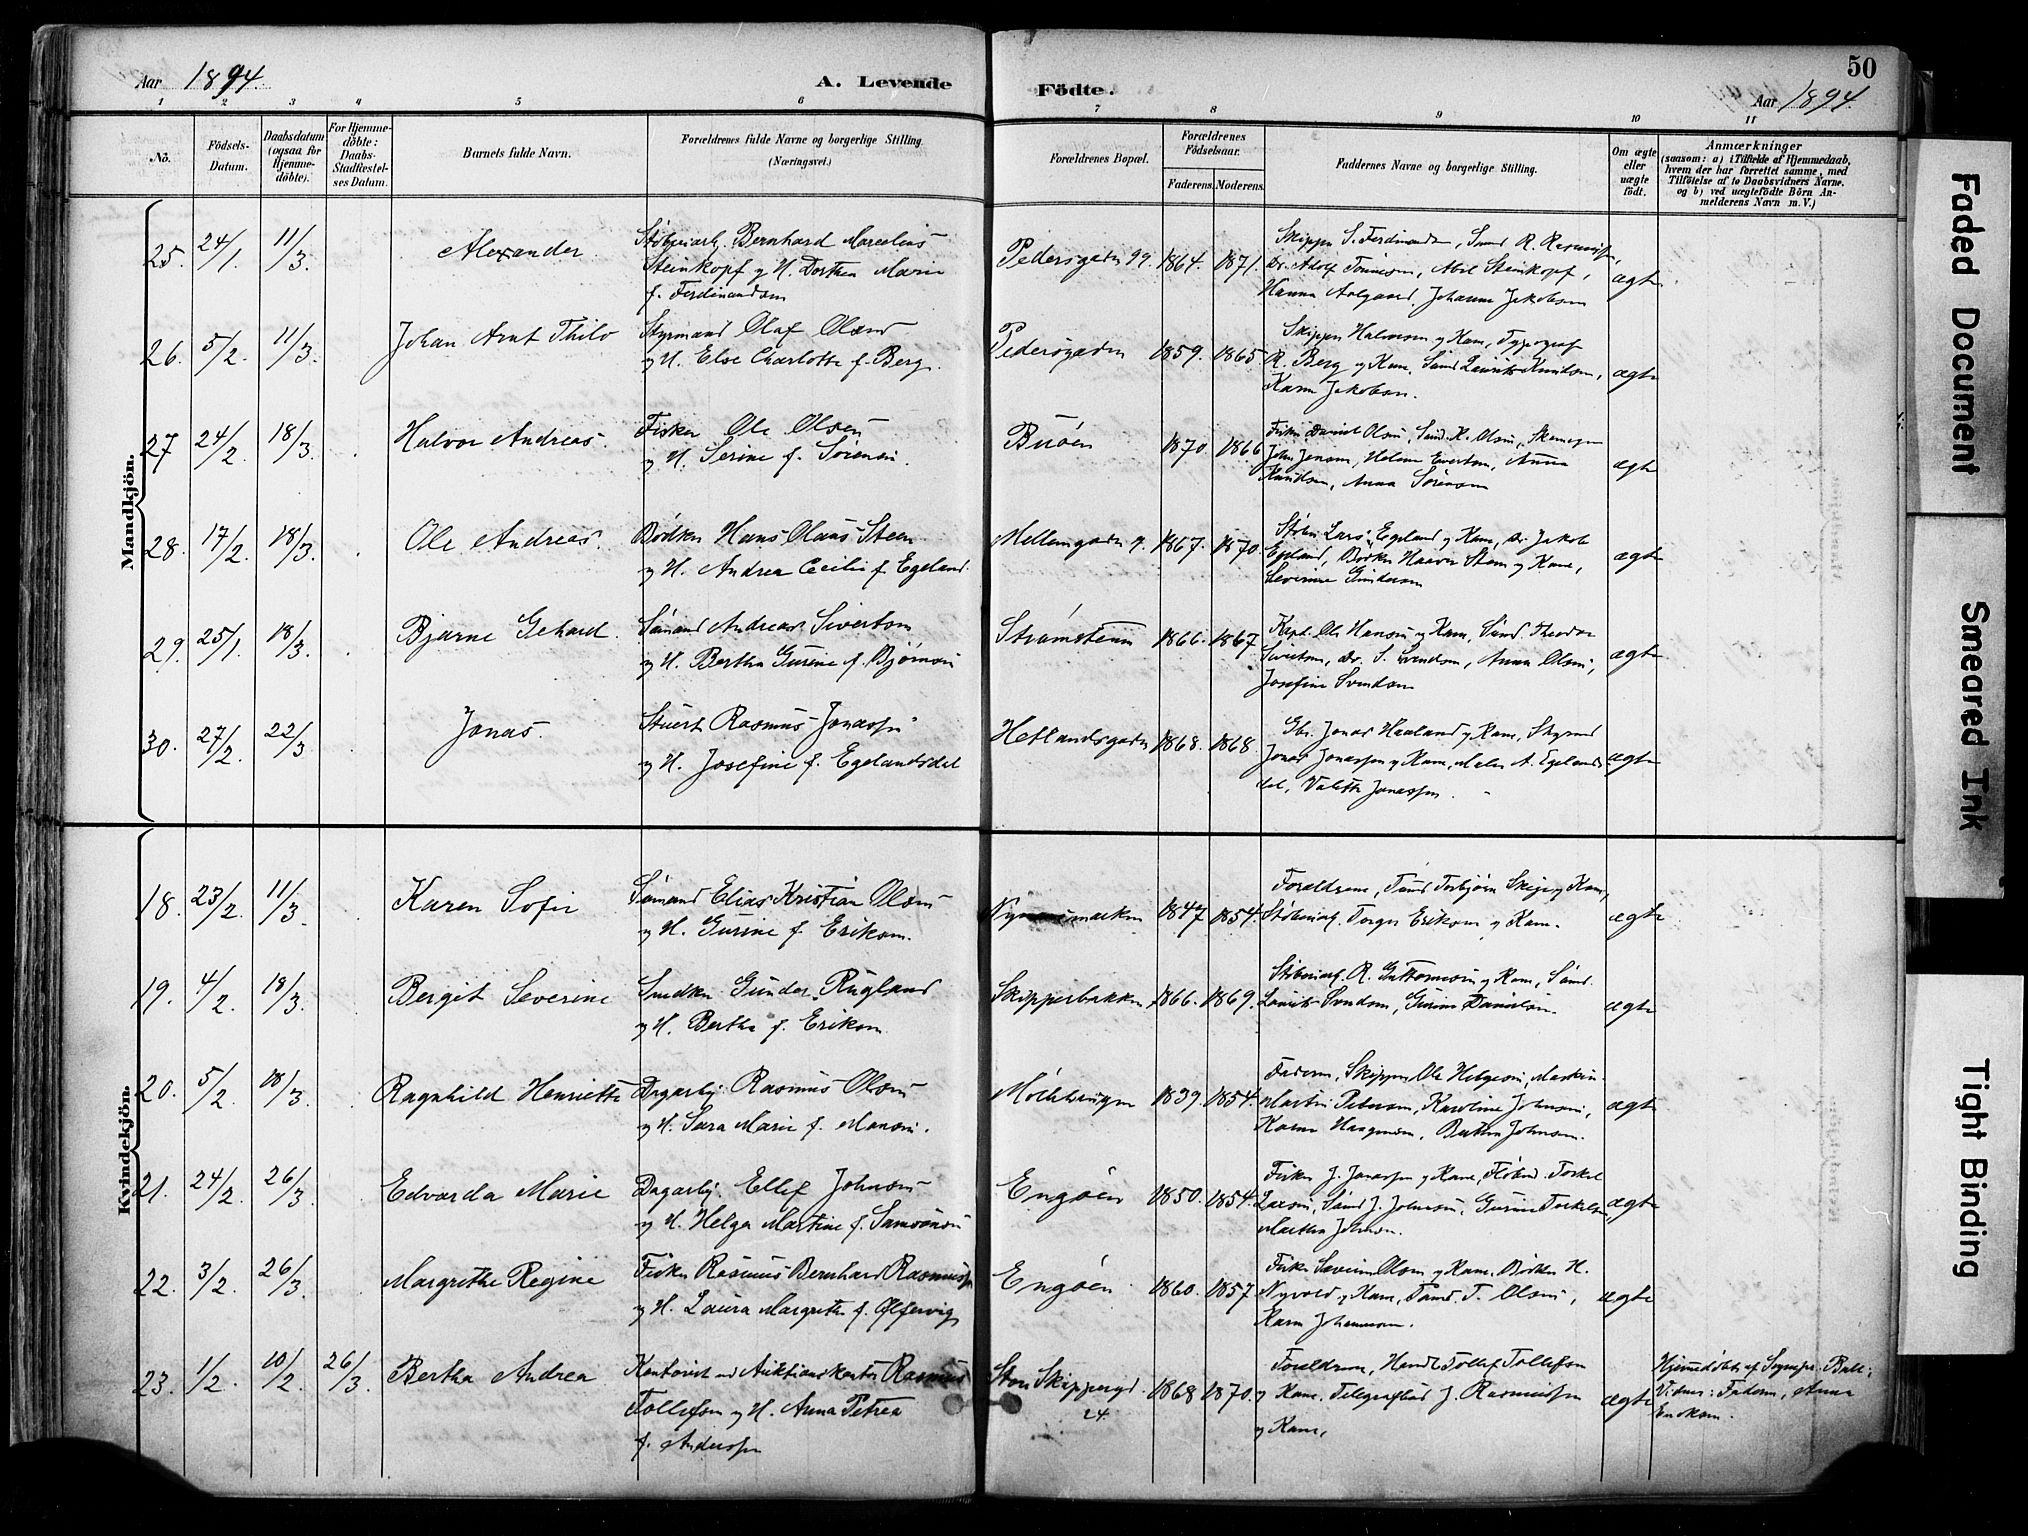 Aar 1894.
A. Levende
Födte.
50
Aar 1894.
1 2 3 4 5 6 7 8 9 10 11
No.
Födsels-
Datum.
Daabsdatum
(ogsaa for
Hjemme-
döbte).
For Hjemme-
döbte:
Daabs-
Stadfæstel-
ses Datum.
Barnets fulde Navn.
Forældrenes fulde Navne og borgerlige Stilling
(Næringsvei.)
Forældrenes Bopæl.
Forældrenes
Födselsaar.
Faderens. Moderens.
Faddernes Navne og borgerlige Stilling.
Om ægte
eller
uægte
födt.
Anmærkninger
(saasom: a) i Tilfælde af Hjemmedaab,
hvem der har forrettet samme, med
Tilföielse af to Daabsvidners Navne.
og b) ved uægtefödte Börn An-
melderens Navn m. V.)
Mandkjön.
25. 24/1. 11/3. Alexander.
Støberiarb. Bernhard Marcelius
Steinkopf og H. Dorthea Marie
f. Ferdinandsen
Pedersgaden 99. 1864. 1871.
Skipper S. Ferdinandsen, Sømd R. Rasmussen,
Dr. Adolf Tønnesen, Abel Steinkopf,
Hanna Aalgaard, Johanna Jakobsen
ægte
26. 5/2. 11/3. Johan Arnt Thilo
Styrmand Olaf Olsen
og H. Else Charlotte f. Berg.
Pedersgaden 1859. 1865
Skipper Halvorsen og Kone, Typograf
R. Berg og Kone. Sømd Laurits Knudsen,
Karen Jakobsen.
ægte
27 24/2. 18/3. Halvor Andreas.
Fisker Ole Olsen
og H. Serine f. Sørensen.
Buøen 1870. 1866
Fisker Daniel Olsen, Sømd. K. Olsen,
John Jensen, Helene Evertsen, Anna
Knudsen, Anna Sørensen
ægte
28. 17/2. 18/3. Ole Andreas.
Bødker Hans Olaus Steen
og H. Andrea Cecilie f. Egeland.
Mellemgaden 9. 1867. 1870.
Støber Lars Egeland og Kone, Dr. Jakob
Egeland, Bødker Haaver Steen og Kone,
Severine Gundersen
ægte
29. 25/1. 18/3. Bjarne Gehard.
Sømand Andreas Sivertsen
og H. Bertha Gurine f. Bjørnsen
Strømstenen 1866. 1867
Kapt. Ole Hansen og Kone, Sømd. Theodor
Sivertsen, Dr. S. Svendsen, Anna Olsen,
Josefine Svendsen
ægte
30. 27/2. 22/3. Jonas.
Stuert Rasmus Jonassen
og H. Josefine f. Egelandsdal
Hetlandsgaden 1868. 1868.
Gbr. Jonas Haaland og Kone, Styrmd
Jonas Jonassen og Kone, Maler A. Egelands
dal, Valette Jonassen.
ægte
Kvindekjön.
18. 23/2. 11/3. Karen Sofie
Sømand Elias Kristian Olsen
og H. Gurine f. Eriksen.
1847 1854.
Forældrene, Tømd Torbjørn Skeie og Kone,
Støberiarb. Torger Eriksen og Kone.
ægte
19. 4/2. 18/3. Bergit Severine
Snedker Gunder Rugland
og H. Bertha f. Eriksen
Skipperbakken 1866. 1869.
Støberiarb. R. Guttormsen og Kone, Sømd.
Laurits Svendsen, Gurine Danielsen.
ægte
20. 5/2. 18/3. Ragnhild Henriette
Dagarbj. Rasmus Olsen
og H. Sara Marie f. Monsen.
1839. 1854.
Faderen, Skipper Ole Helgesen, Maskin-
Martin Petersen, Karoline Johnsen,
Karen Haagensen, Bertha Johnsen.
ægte
21. 24/2. 26/3. Edvarda Marie
Dagarbj. Ellef Johnsen
og H. Helga Martine f. Samsonsen
Engøen 1850. 1854.
Fisker J. Jonassen og Kone, Torkel
Larsen, Sømd J. Johnsen, Gurine Torkelsen,
Martha Johnsen.
ægte
22. 3/2. 26/3. Margrethe Regine
Fisker Rasmus Bernhard Rasmussen
og H. Laura Margrethe f. Østervig
Engøen 1860. 1857
Fisker Severin Olsen og Kone. Bødker H.
Nyvold og Kone, Tømd. T. Olsen,
Karen Johannesen.
ægte
23. 1/2. 10/2. 26/3. Bertha Andrea
Kontorist ved Auktionskontor Rasmus
Tollefsen og H. Anna Petrea
f. Andersen
Store Skippergd. 24. 1868 1870.
Forældrene, Handl. Tollef Tollefsen
og Kone. Telegrafbud J. Rasmussen
og Kone,
ægte
Hjemmedøbt af Sognepr. Bull.
Vidner: Faderen, Anna
Enoksen.
Faded Document
Smeared Ink
Tight Binding